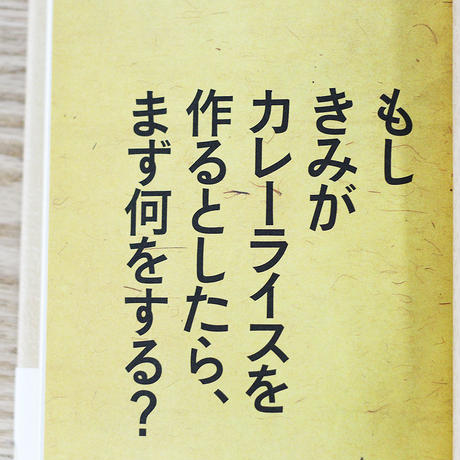 もし
きみが
カレーライスを
作るとしたら、
まず何をする？